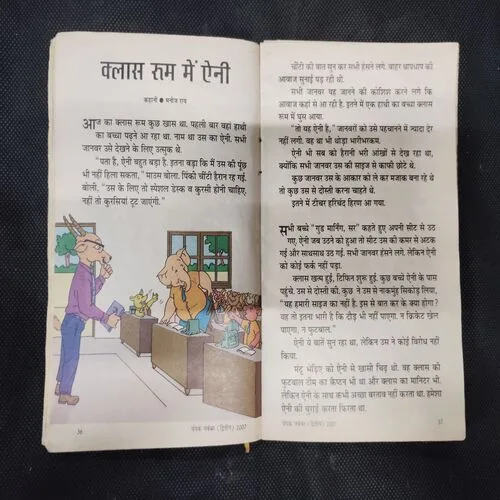 क्लास रूम में ऐनी
कहानी ● मनोज राय
आज का क्लास रूम कुछ खास था. पहली बार वहां हाथी
का बच्चा पढ़ने आ रहा था. नाम था उस का ऐनी. सभी
जानवर उसे देखने के लिए उत्सुक थे.
“पता है, ऐनी बहुत बड़ा है. इतना बड़ा कि मैं उस की पूंछ
भी नहीं हिला सकता, ” माउस बोला. पिंकी चींटी हैरान रह गई.
बोली, “उस के लिए तो स्पेशल डेस्क व कुरसी होनी चाहिए,
नहीं तो कुरसियां टूट जाएंगी.”
36
चंपक नवंबर (द्वितीय) 2007
चींटी की बात सुन कर सभी हंसने लगे. बाहर धापधाप की
आवाज सुनाई पड़ रही थी.
सभी जानवर यह जानने की कोशिश करने लगे कि
आवाज कहां से आ रही है. इतने में एक हाथी का बच्चा क्लास
रूम में घुस आया.
“तो यह ऐनी है,” जानवरों को उसे पहचानने में ज्यादा देर
नहीं लगी. वह था भी थोड़ा भारीभरकम.
ऐनी भी सब को हैरानी भरी आंखों से देख रहा था,
क्योंकि सभी जानवर उस की साइज से काफी छोटे थे.
कुछ जानवर उस के आकार को ले कर मजाक बना रहे थे
तो कुछ उस से दोस्ती करना चाहते थे.
इतने में टीचर हरिचंद हिरण आ गया.
सभी बच्चे “गुड मार्निंग, सर” कहते हुए अपनी सीट से उठ
गए. ऐनी जब उठने को हुआ तो सीट उस की कमर से अटक
गई और साथसाथ उठ गई. सभी जानवर हंसने लगे. लेकिन ऐनी
को कोई फर्क नहीं पड़ा.
क्लास खत्म हुई, टिफिन शुरू हुई. कुछ बच्चे ऐनी के पास
पहुंचे. उस से दोस्ती की. कुछ ने उस से नाकमुंह सिकोड़ लिया,
“यह हमारी साइज का नहीं है. इस से बात कर के क्या होगा?
वह तो इतना भारी है कि दौड़ भी नहीं पाएगा. न क्रिकेट खेल
पाएगा, न फुटबाल.”
ऐनी ये बातें सुन रहा था, लेकिन उस ने कोई विरोध नहीं
किया.
मंटू भेड़िए को ऐनी से खासी चिढ़ थी. वह क्लास की
फुटबाल टीम का कैप्टन भी था और क्लास का मानिटर भी.
लेकिन ऐनी के साथ कभी अच्छा बरताव नहीं करता था. हमेशा
ऐनी की बुराई करता फिरता था.
चंपक नवंबर (द्वितीय) 2007
37